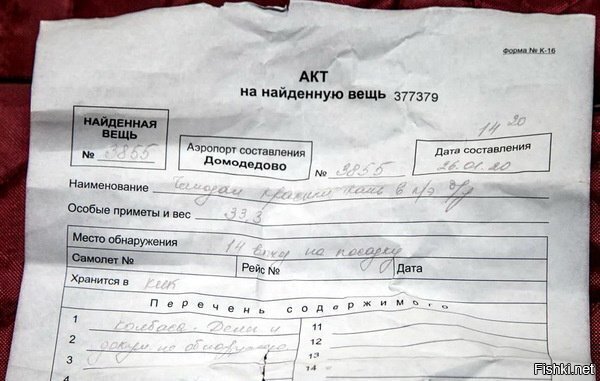 Форма № К-16
АКТ
на найденную вещь 377379
НАЙДЕННАЯ
ВЕЩЬ
№ 3855
Аэропорт составления
Домодедово
№ 3855
14 20
Дата составления
26.01.20
Наименование Чемодан красный в п/э
Особые приметы и вес 33,3
Место обнаружения 14 выход на посадку
Самолет № Рейс № Дата
Хранится в
Перечень содержимого
1 колбаса. Деньги 11
2 докум. не обнаружено 12
3 13
14
Fishki.net